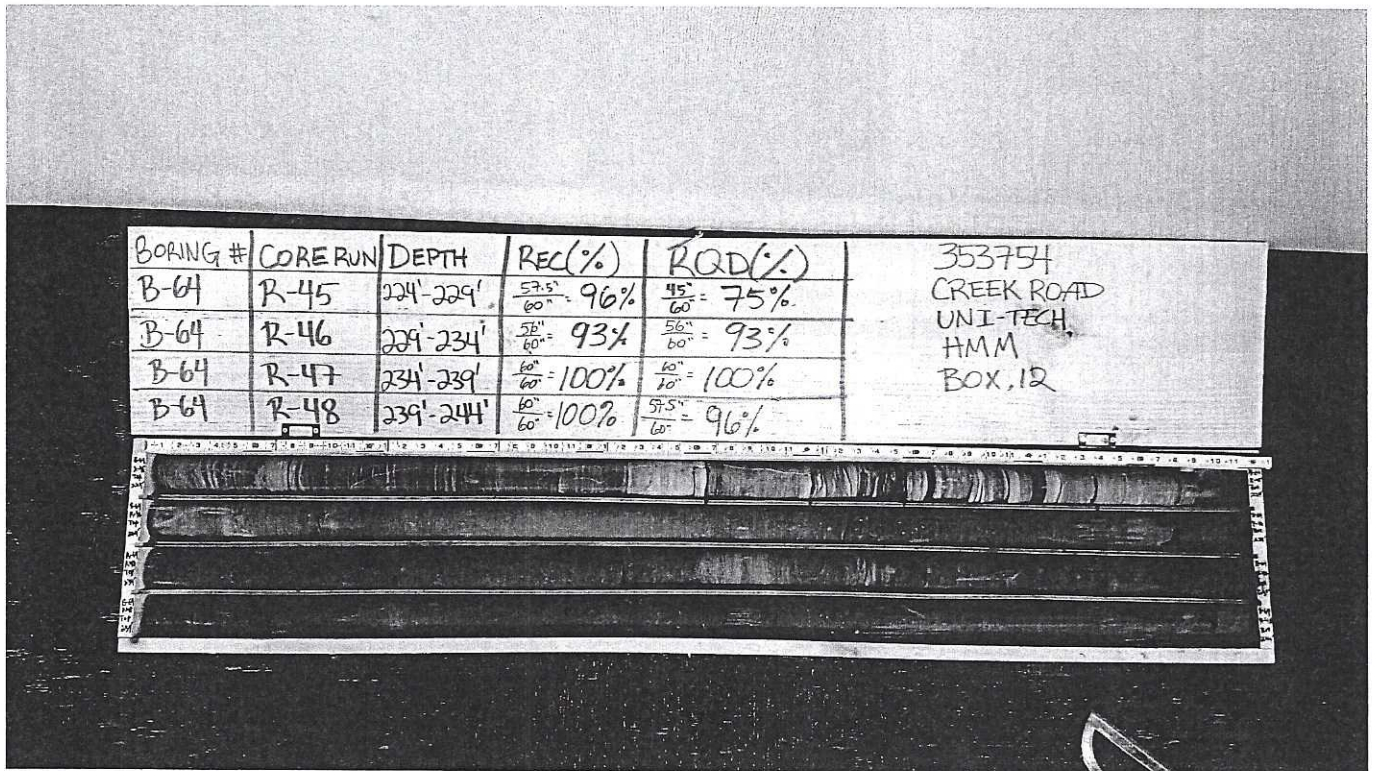 BORING # CORE RUN DEPTH REC(%) RQD(%)
B-64 R-45 224'-229' 57.5"/60" = 96% 45"/60" = 75%
B-64 R-46 229'-234' 56"/60" = 93% 56"/60" = 93%
B-64 R-47 234'-239' 60"/60" = 100% 60"/60" = 100%
B-64 R-48 239'-244' 60"/60" = 100% 57.5"/60" = 96%
353754
CREEK ROAD
UNI-TECH
HMM
BOX.12